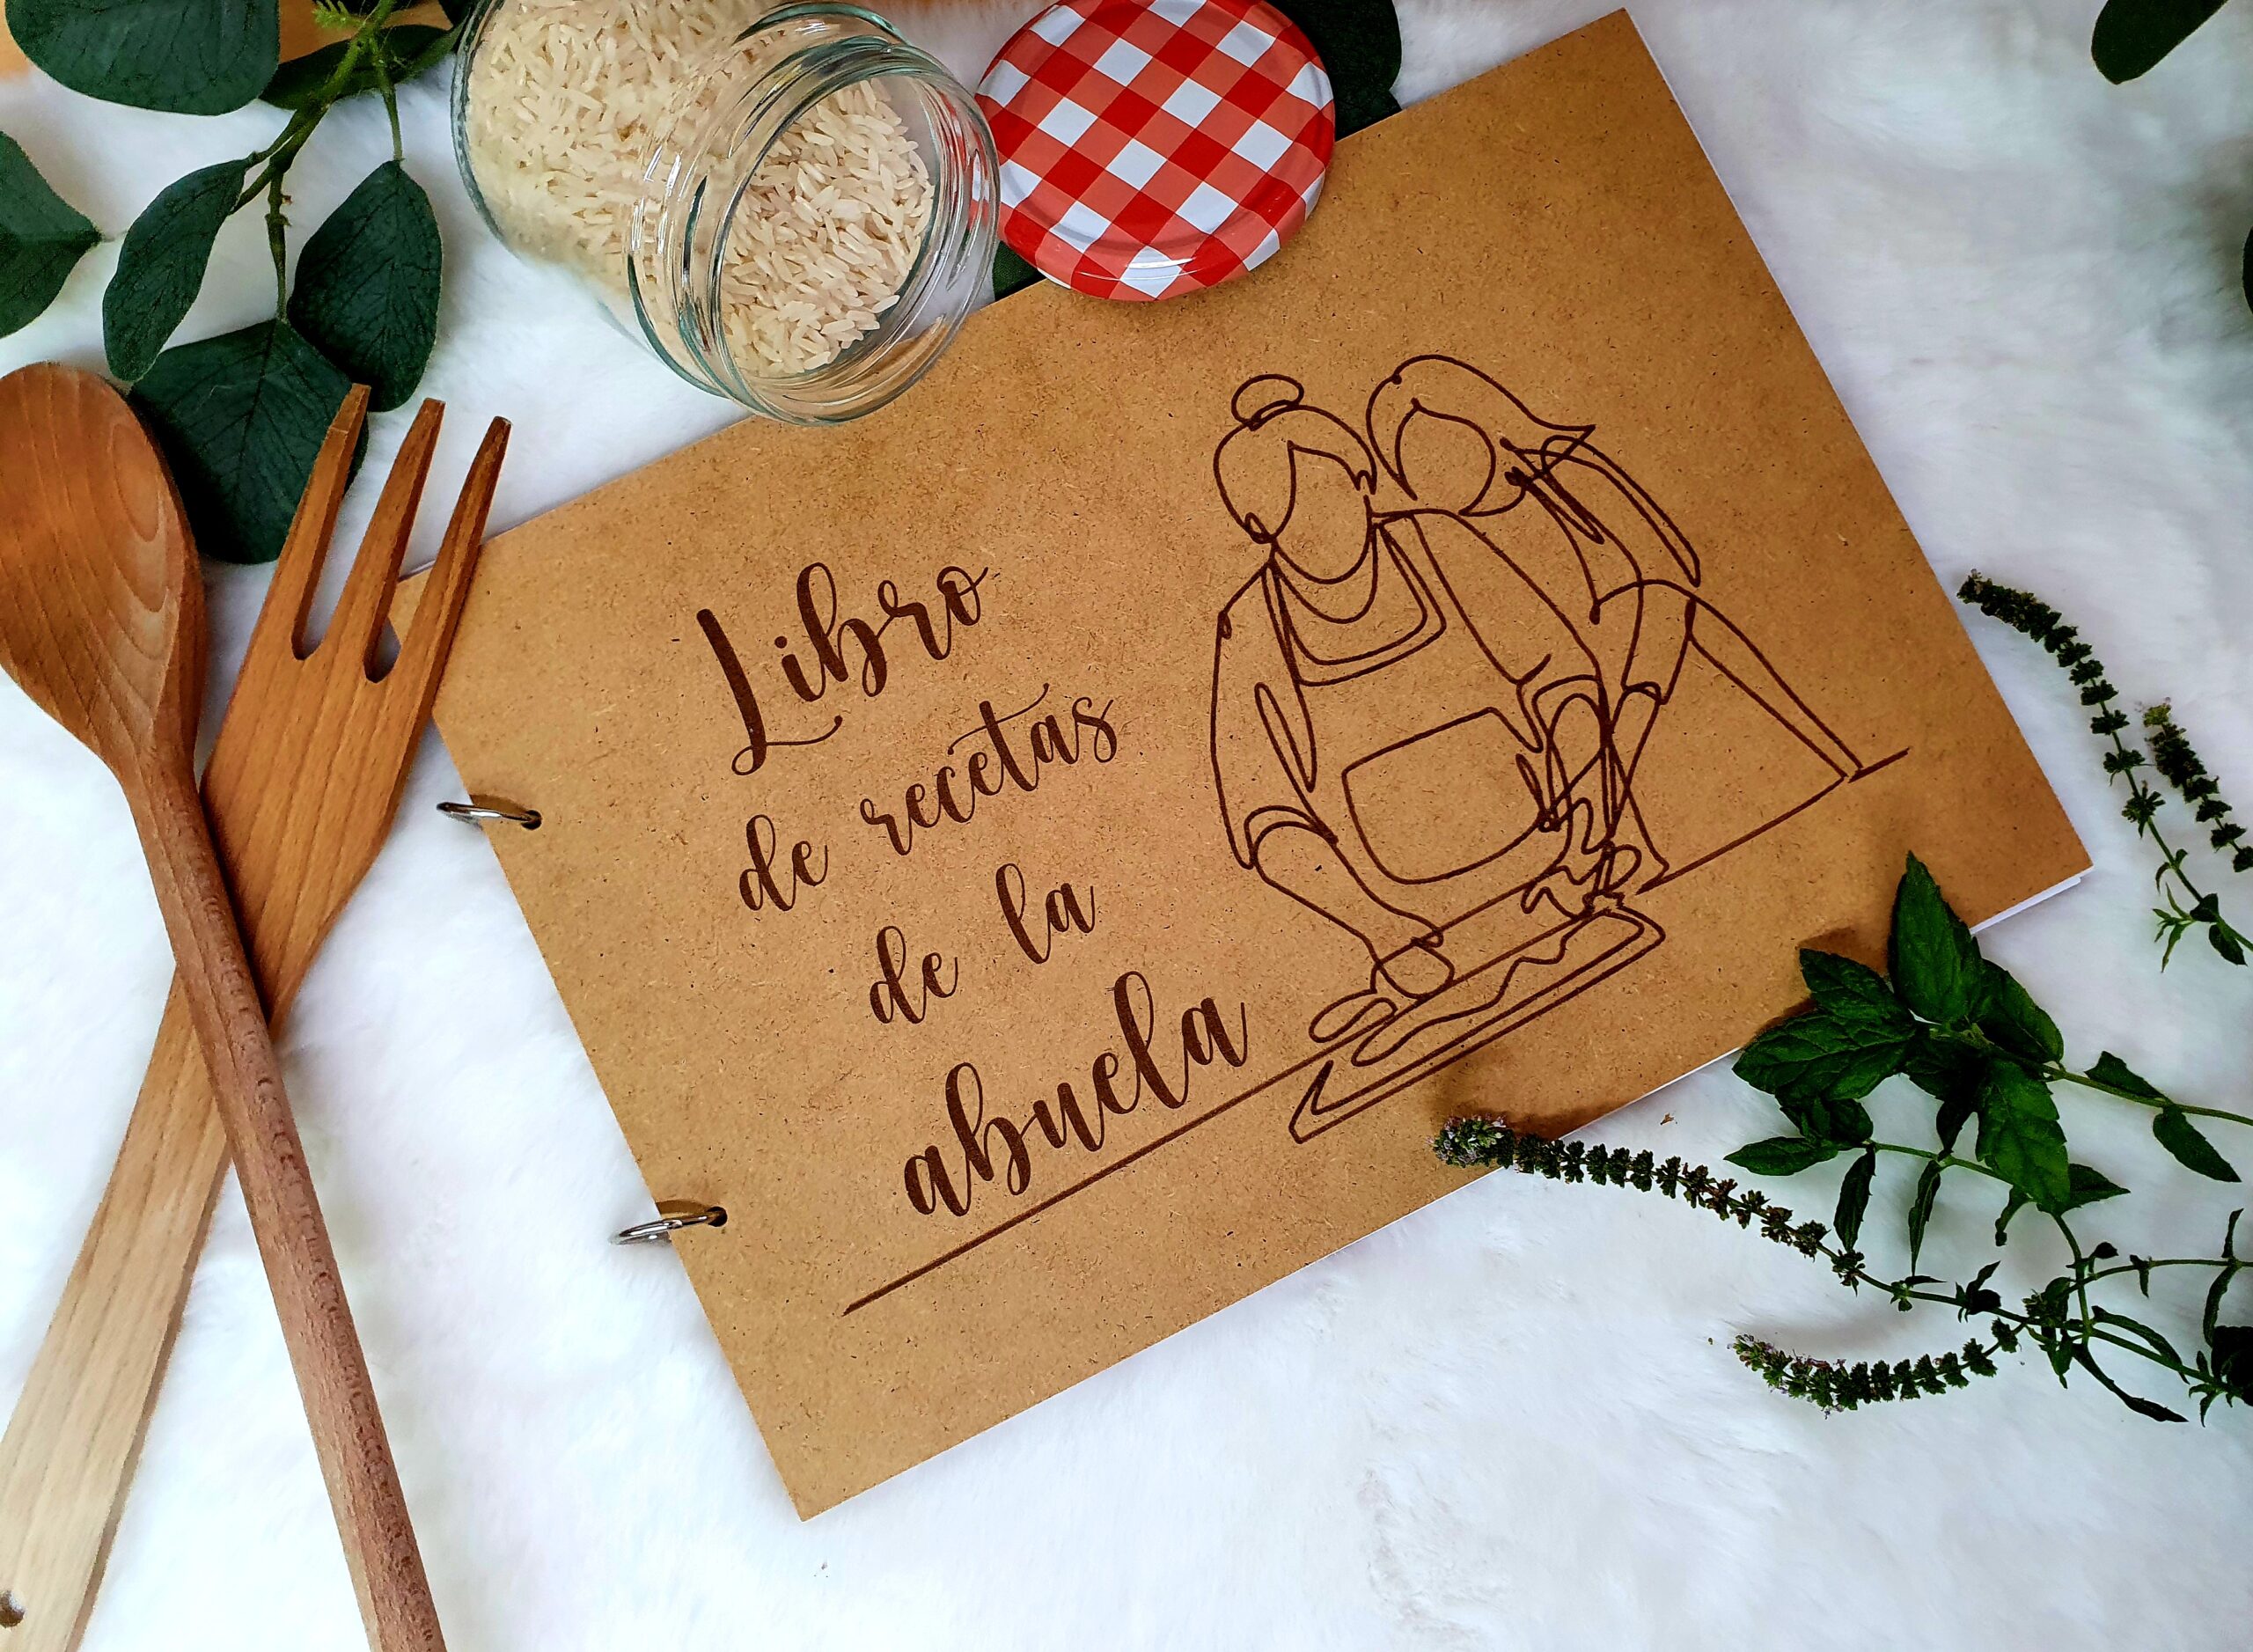 Libro
de recetas
de la
abuela